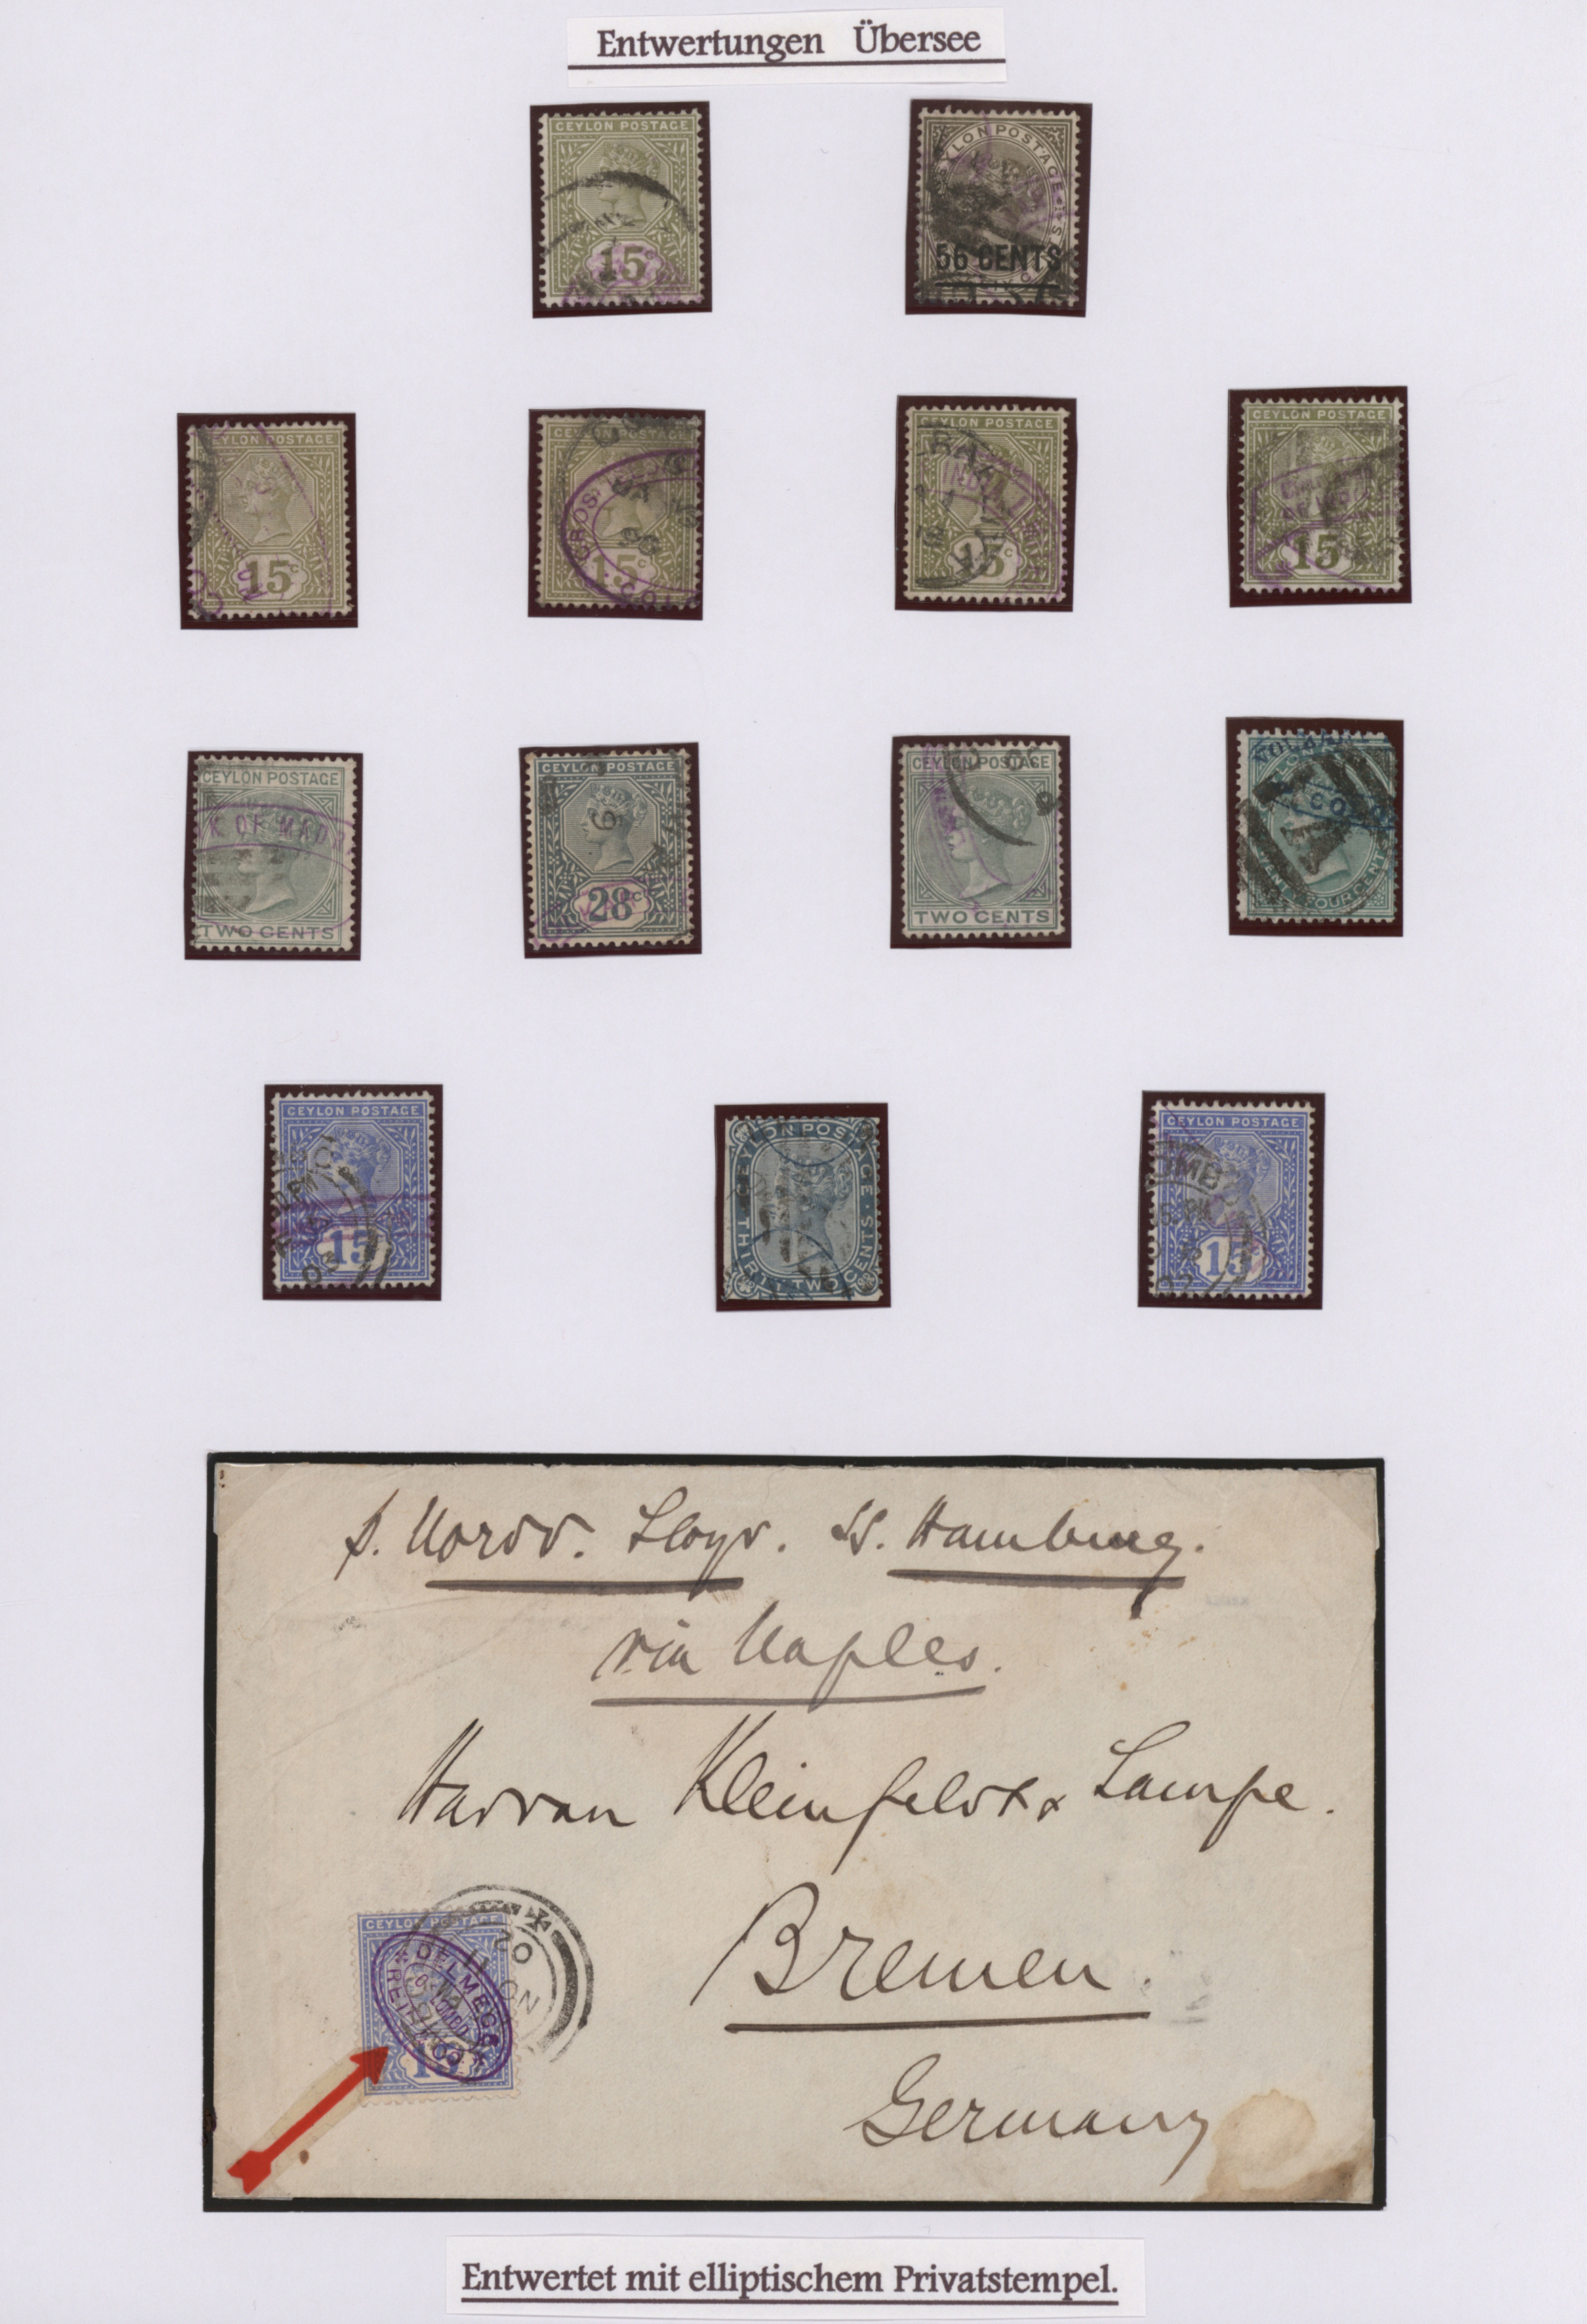 Entwertungen Übersee
CEYLON POSTAGE
15
CEYLON POSTAGE
56 CENTS
CEYLON POSTAGE
15c
CEYLON POSTAGE
CROS
15c
CEYLON POSTAGE
15c
CEYLON POSTAGE
15
CEYLON POSTAGE
K OF MAD
TWO CENTS
CEYLON POSTAGE
28c
CEYLON POSTAGE
TWO CENTS
COLO
TWENTY FOUR CENTS
CEYLON POSTAGE
15
03
CEYLON POSTAGE
THIRTY TWO CENTS
CEYLON POSTAGE
OMB
15
02
p. Nordd. Lloyd. SS. Hamburg.
via Naples.
Herren Kleinfeldt & Lampe.
Bremen.
Germany
CEYLON POSTAGE
DELMEGE
REID & CO
COLOMBO
15
NO 11
02
Entwertet mit elliptischem Privatstempel.